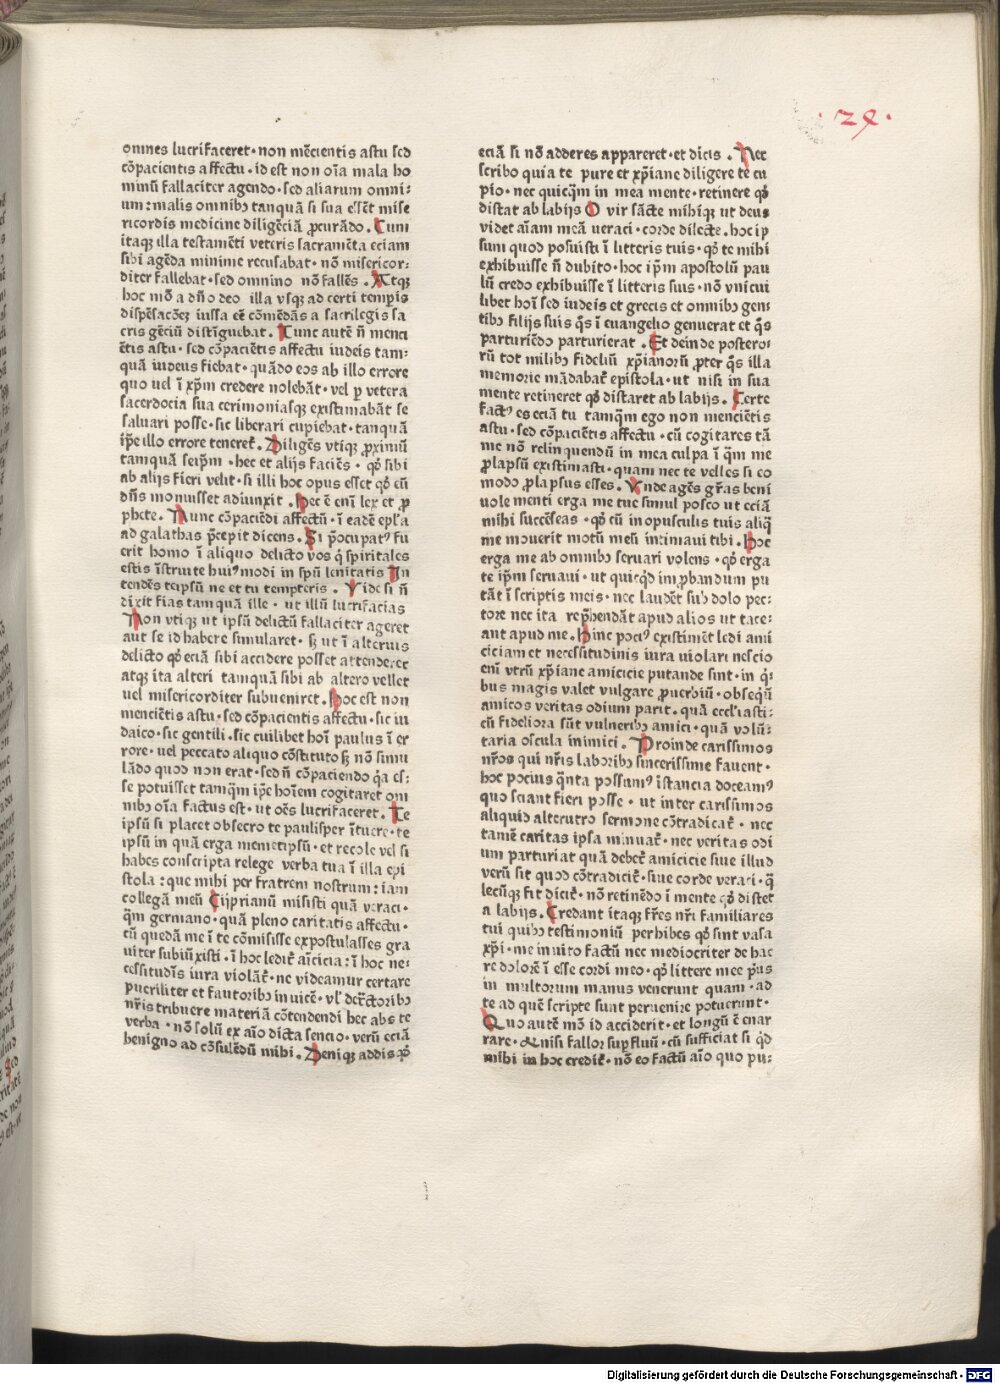 · 24 ·
omnes lucrifaceret · non mēcientis astu sed
cōpacientis affectu · id est non oīa mala ho
minū fallaciter agendo · sed aliarum omni⸗
um : malis omnibꝫ tanquā si sua essēt mise
ricordis medicine diligēciā ꝓcurādo . Cum
itaqꝫ illa testamēti veteris sacramēta eciam
sibi agēda minime recusabat · nō misericor⸗
diter fallebat · sed omnino nō fallēs . Atqꝫ
hoc mō a dño deo illa vsqꝫ ad certi temꝑis
dispēsacōeꝫ iussa eē cōmēdās a sacrilegis sa
cris gēciū distīguebat . Tunc autē n̄ menci
ētis astu · sed cōpaciētis affectu iudeis tam⸗
quā iudeus fiebat · quādo eos ab illo errore
quo vel ī xp̄m credere nolebāt · vel ꝑ vetera
sacerdocia sua cerimoniasqꝫ existimabāt se
saluari posse · sic liberari cupiebat · tanquā
ip̄e illo errore teneret̄ . Diligēs vtiqꝫ ꝓximū
tamquā seip̄m · hec et alijs faciēs · qꝫ sibi
ab alijs fieri velit · si illi hoc opus esset qꝫ cū
dn̄s monuisset adiunxit . Hec ē enī lex et ꝓ
phete . Nunc cōpaciēdi affectū · ī eadē epl̄a
ad galathas p̄cepit dicens . Si p̄ocupatꝰ fu
erit homo ī aliquo delicto vos q̇ spiritales
estis īstruite huiꝰmodi in sp̄u lenitatis In
tendēs teipsū ne et tu tempteris . Vide si n̄
dixit fias tamquā ille · ut illū lucrifacias
Non vtiqꝫ ut ipsū delictū fallaciter ageret
aut se id habere simularet · sꝫ ut ī alterius
delicto qꝫ eciā sibi accidere posset attenderet
atqꝫ ita alteri tamquā sibi ab altero vellet
uel misericorditer subueniret . Hoc est non
menciētis astu · sed cōpacientis affectu · sic iu
daico · sic gentili · sic cuilibet hoī paulus ī er
rore · uel peccato aliquo cōstituto sꝫ nō simu
lādo quod non erat · sed n̄ cōpaciendo q̇a es⸗
se potuisset tamqm̄ ip̄e hoīem cogitaret om
nibꝫ oīa factus est · ut oēs lucrifaceret . Te
ipsū si placet obsecro te paulisper ītuere · te
ipsū in quā erga memetipsū · et recole vel si
habes conscripta relege verba tua ī illa epi
stola : que mihi per fratrem nostrum : iam
collegā meū Cijprianū misisti quā veraci ·
qm̄ germano · quā pleno caritatis affectu ·
tū quedā me ī te cōmisisse expostulasses gra
uiter subiūxisti · ī hoc ledit̄ amicicia : ī hoc ne⸗
cessitudīs iura violāt̄ · ne videamur certare
pueriliter et fautoribꝫ inuicē · vl̄ detr̄ctoribꝫ
nr̄is tribuere materiā cōtendendi hec abs te
verba · nō solū ex aīo dicta sencio · verū eciā
benigno ad cōsulēdū mihi . Deniqꝫ addis qꝫ
eciā si nō adderes appareret · et dīcis . Nec
scribo quia te pure et xp̄iane diligere te cu
pio · nec quicqm̄ in mea mente · retinere qꝫ
distat ab labijs O vir sācte mihiqꝫ ut deus
videt aīam meā ueraci · corde dilecte · hoc ip
sum quod posuisti ī litteris tuis · qꝫ te mihi
exhibuisse n̄ dubito · hoc ip̄m apostolū pau
lū credo exhibuisse ī litteris suis · nō vnicui
libet hoī sed iudeis et grecis et omnibꝫ gen
tibꝫ filijs suis q̄s ī euangelio genuerat et q̄s
parturiēdo parturierat . Et deinde postero⸗
rū tot milibꝫ fideliū xp̄ianorū ꝓpter q̄s illa
memorie mādabat̄ epistola · ut nisi in sua
mente retineret qꝫ distaret ab labijs . Certe
factꝰ es eciā tu tamqm̄ ego non menciētis
astu · sed cōpaciētis affectu · cū cogitares tā
me nō relinquendū in mea culpa ī qm̄ me
ꝓlapsū existimasti · quam nec te velles si eo
modo ꝓlapsus esses . Vnde agēs gr̄as beni
uole menti erga me tue simul posco ut eciā
mihi succēseas · qꝫ cū in opusculis tuis aliq̇
me mouerit motū meū intimaui tibi . Hoc
erga me ab omnibꝫ seruari volens · qꝫ erga
te ip̄m seruaui · ut quicq̇d imꝓbandum pu
tāt ī scriptis meis · nec laudēt sub dolo pec⸗
tore nec ita rep̄hendāt apud alios ut tace⸗
ant apud me . Hinc pociꝰ existimēt ledi ami
ciciam et necessitudinis iura uiolari nescio
enī vtrū xp̄iane amicicie putande sint · in q̇⸗
bus magis valet vulgare ꝓuerbiū · obsequiū
amicos veritas odium parit · quā eccl̄iasti⸗
cū fideliora sūt vulneribꝫ amici · quā volū⸗
taria oscula inimici . Proinde carissimos
nr̄os qui nr̄is laboribꝫ sincerissime fauent ·
hoc pocius q̄nta possamꝰ īstancia doceamꝰ
quo sciant fieri posse · ut inter carissimos
aliquid alterutro sermone cōtradicat̄ · nec
tamē caritas ipsa minuat̄ · nec veritas odi
um parturiat quā debet̄ amicicie siue illud
verū sit quod cōtradicit̄ · siue corde veraci · q̄
lecūqꝫ fit dicit̄ · nō retinēdo ī mente qꝫ distet
a labijs . Credant itaqꝫ fr̄es nr̄i familiares
tui quibꝫ testimoniū perhibes qꝫ sint vasa
xp̄i · me inuito factū nec mediocriter de hac
re dolorē ī esse cordi meo · qꝫ littere mee p̄us
in multorum manus venerunt quam · ad
te ad quē scripte sunt peruenire potuerunt ·
Quo autē mō id acciderit · et longū ē enar
rare · & nisi fallor suꝑfluū · cū sufficiat si q̇d
mihi in hoc credit̄ · nō eo factū aīo quo pu⸗
Digitalisierung gefördert durch die Deutsche Forschungsgemeinschaft - DFG